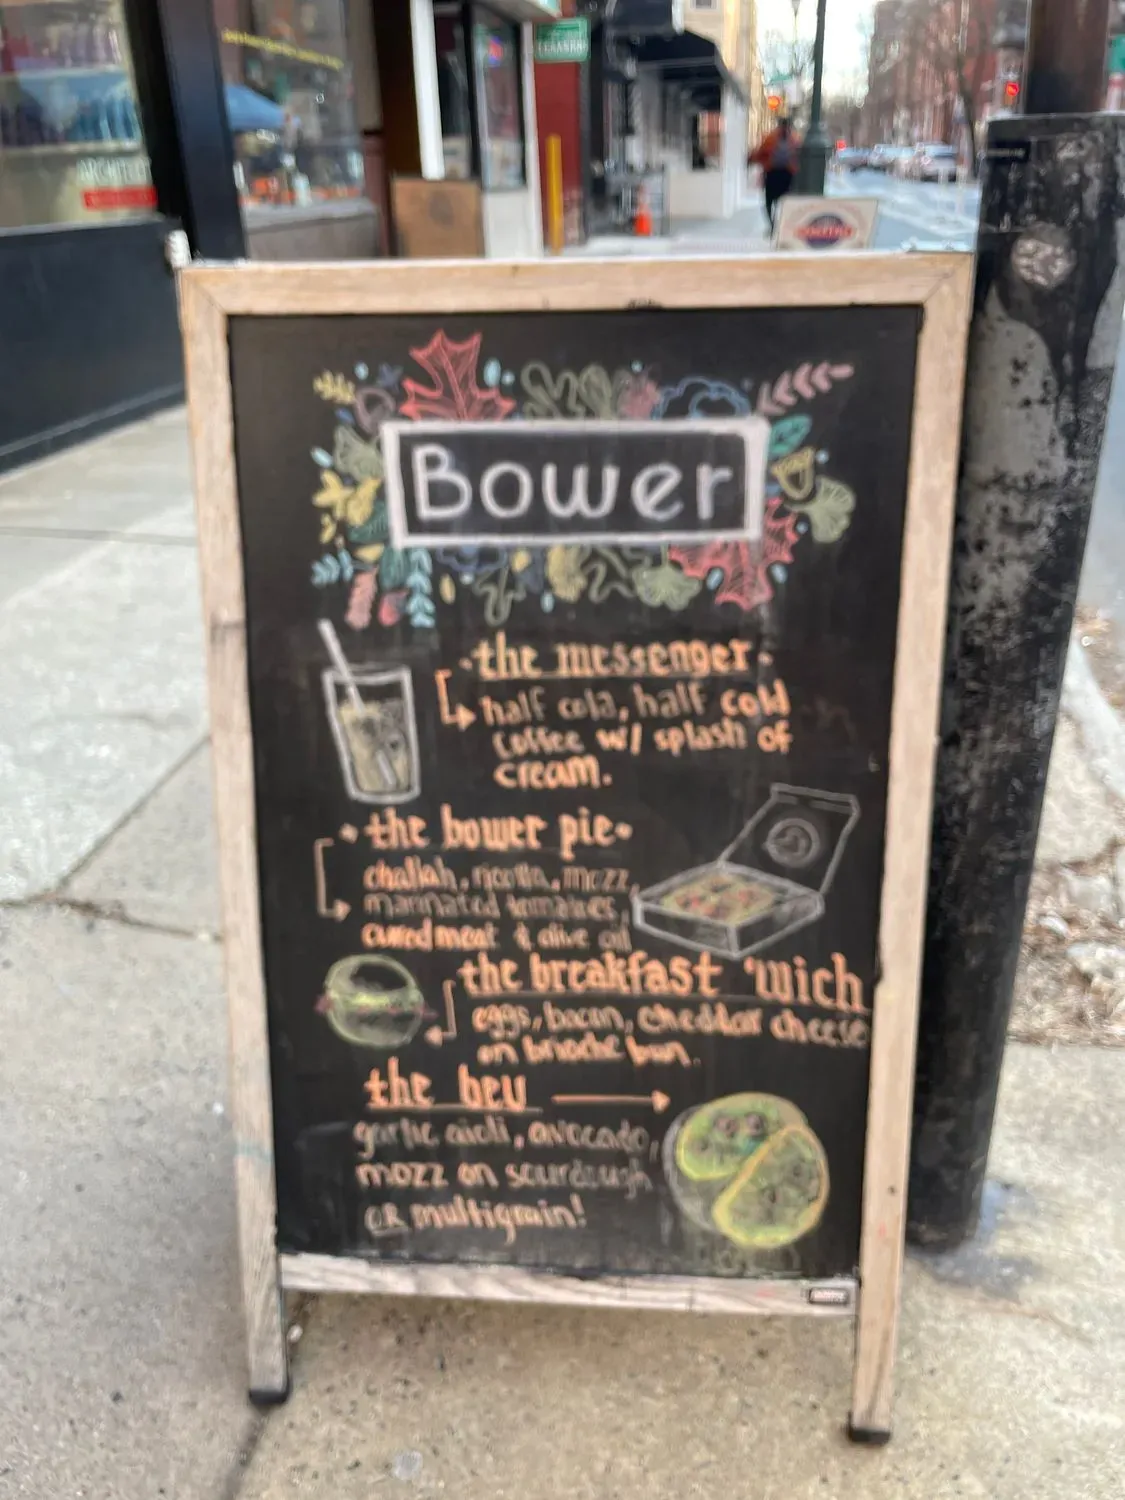 Bower
the messenger
half cola, half cold
coffee w/ splash of
cream.
the bower pie
challah, ricotta, mozz,
marinated tomatoes,
cured meat & olive oil
the breakfast 'wich
eggs, bacon, cheddar cheese
on brioche bun.
the bev
garlic aioli, avocado,
mozz on sourdough
OR multigrain!